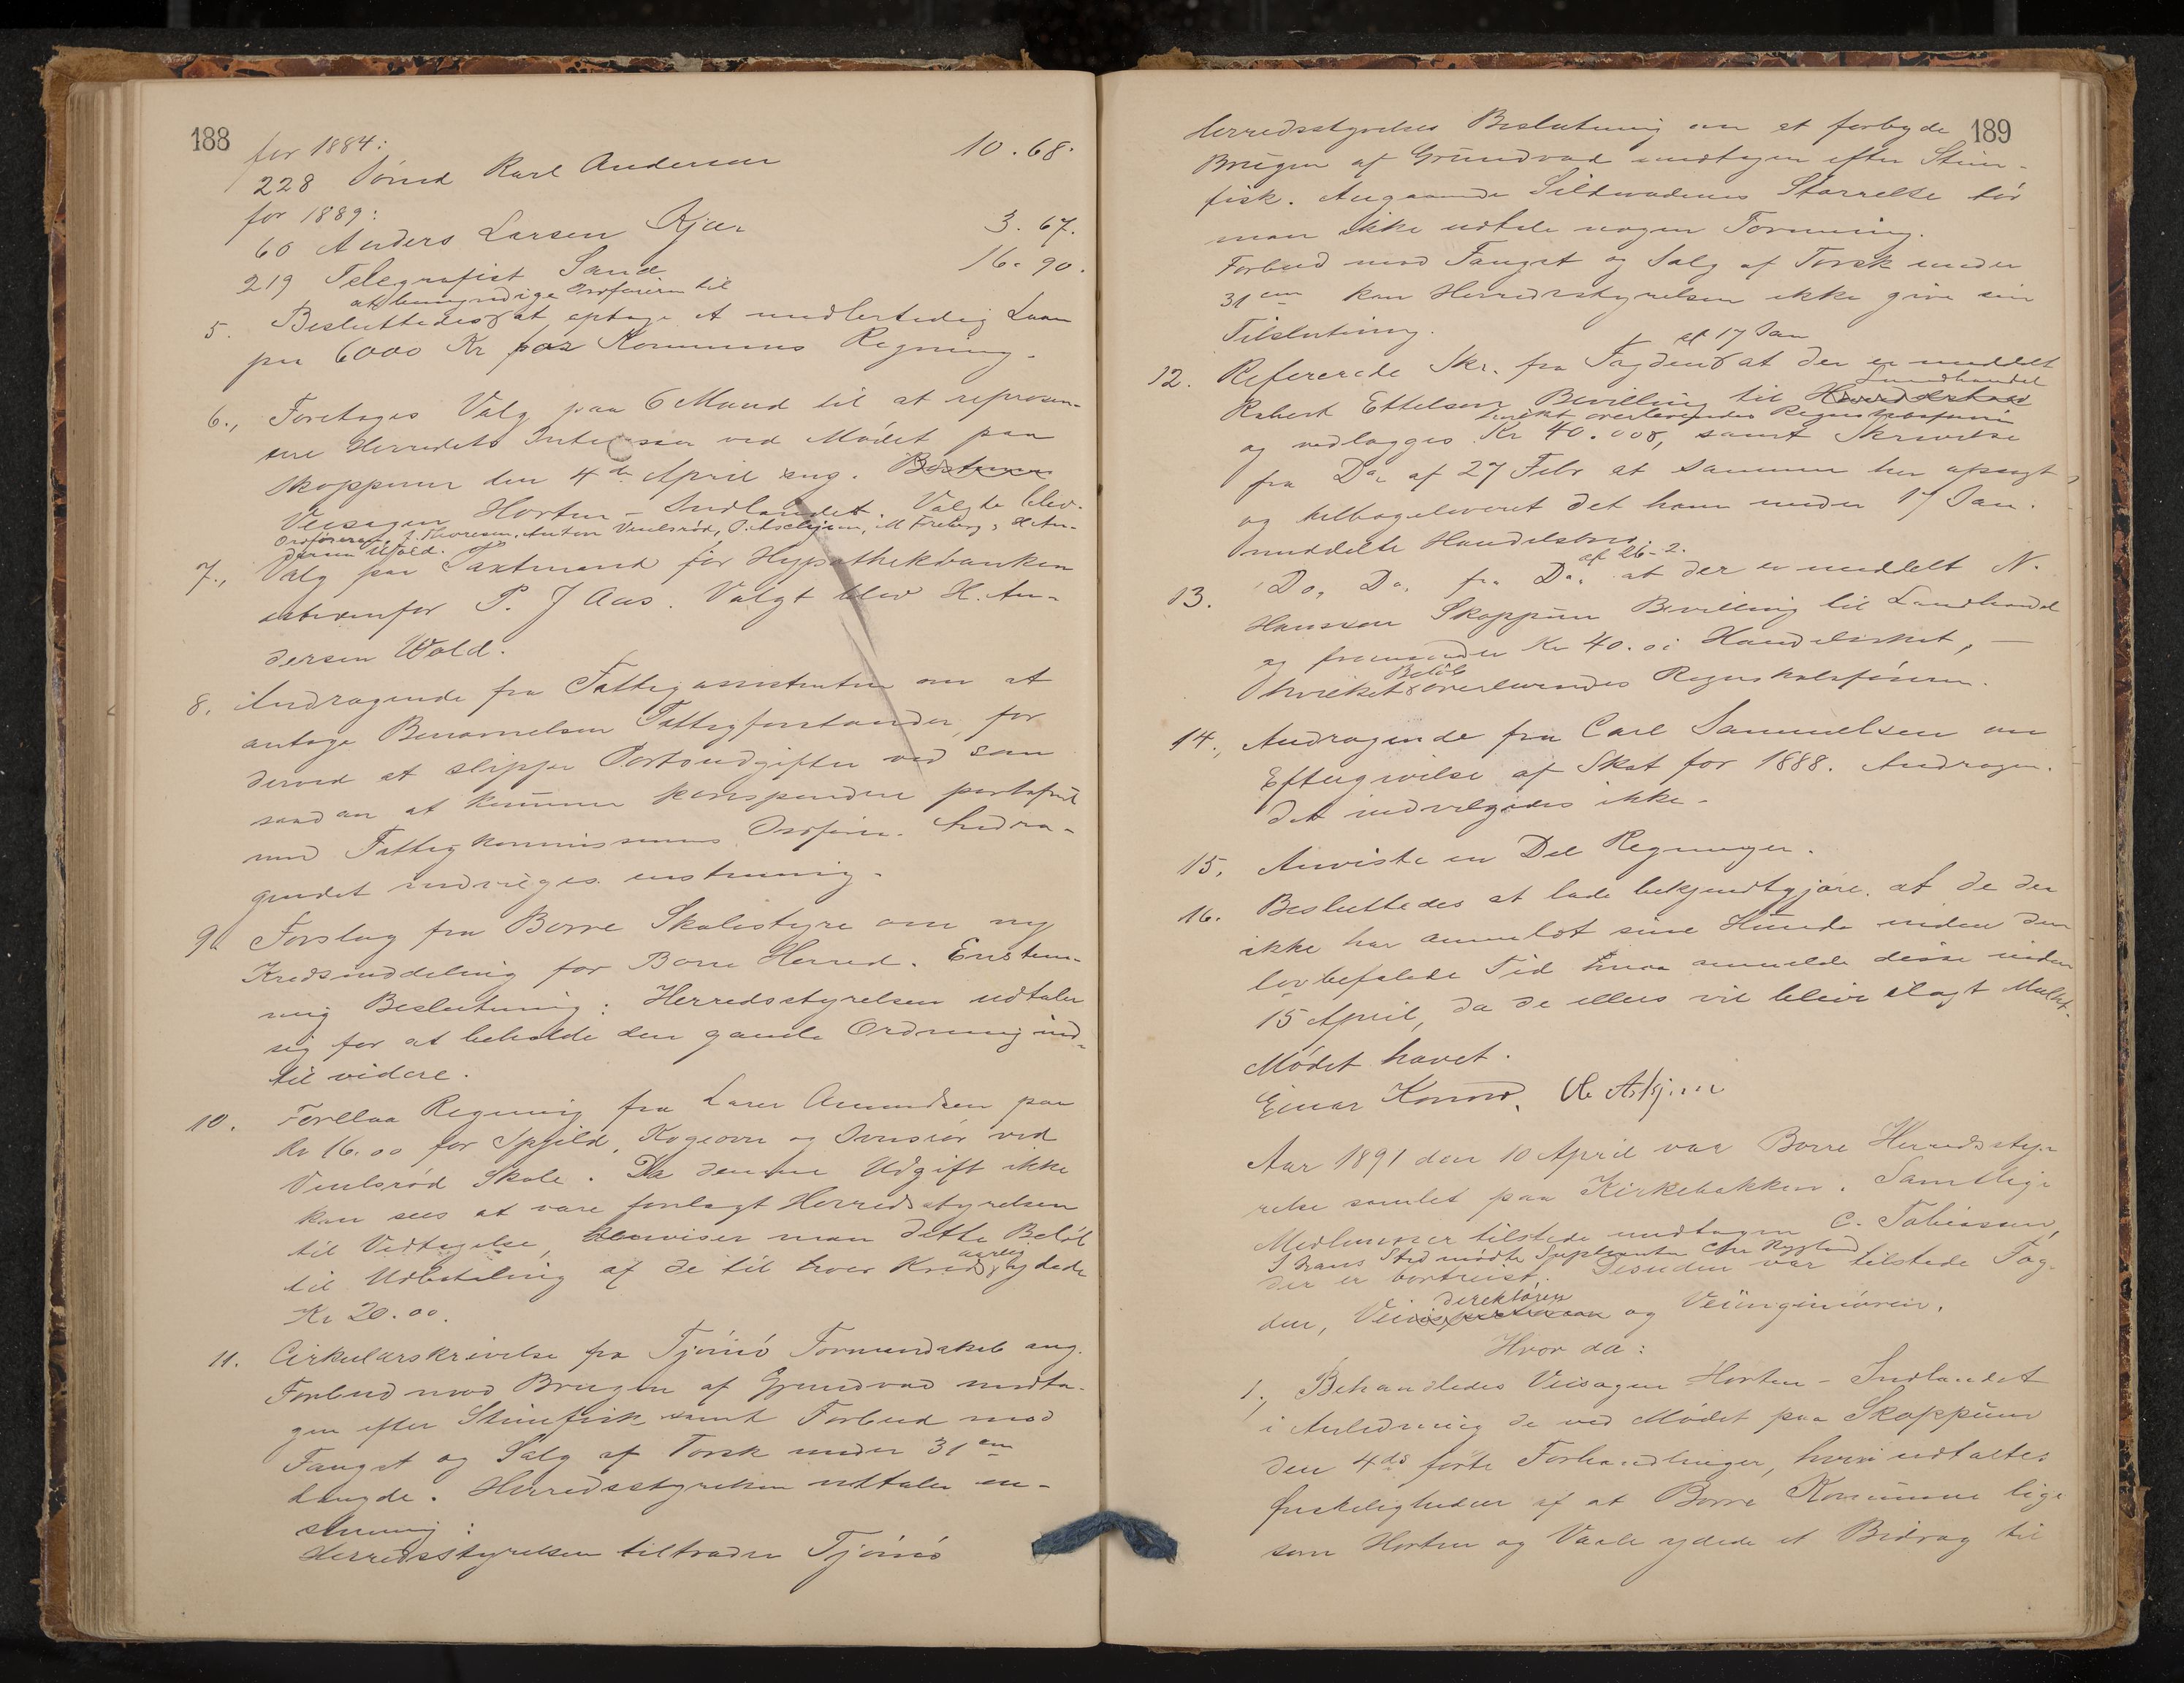 188
for 1884:
228 Tømd Karl Andersen 10.68.
for 1889:
60 Anders Larsen Kjær 3.67.
219 Telegrafist Sand 16.90.
at bemyndige Ordføreren til
5. Besluttedes at optage et midlertidig Laan
paa 6000 Kr for Kommunens Regning.
6., Foretoges Valg paa 6 Mænd til at repræsen-
tere Herredets Interesser ved Mødet paa
Skoppum den 4de April ang.
Veisagen Horten - Indlandet. Valgte blev.
Ordføreren, J. Thoresen, Anton Veulsrød, O. Askjem, M Freberg, H An-
dersen Wold.
7., Valg paa Taxtmand for Hypothekbanken
istedenfor P. J Aas. Valgt blev H. An-
dersen Wold.
8. Andragende fra Fattigassistenten om at
antage Benævnelsen Fattigforstander, for
derved at slippe Portoudgifter ved som
saadan at kunne korrespondere portofrit
med Fattigkommissionens Ordfører. Andra-
gendet indvilges enstemmig.
9. Forslag fra Borre Skolestyre om ny
Kredsinddeling for Borre Herred. Enstem-
mig Beslutning: Herredsstyrelsen udtaler
sig for at beholde den gamle Ordning ind-
til videre.
10. Forelaa Regning fra Lærer Amundsen paa
Kr 16.00 for Spjild, Kogeovn og Ovnsrør ved
Veulsrød Skole. Da denne Udgift ikke
kan sees at være forelagt Herredsstyrelsen
til Vedtagelse, henviser man dette Beløb
til Udbetaling af de til hver Kreds aarlig ydede
Kr 20.00.
11. Cirkulærskrivelse fra Tjømø Formandskab ang.
Forbud mod Brugen af Grundvad undta-
gen efter Stimfisk samt Forbud mod
Fangst og Salg af Torsk under 31 cm
Længde. Herredsstyrelsen udtaler en-
stemmig:
Herredsstyrelsen tiltræder Tjømø
189
Herredsstyrelses Beslutning om at forbyde
Brugen af Grundvad undtagen efter Stim-
fisk. Angaaende Sildevadenes Størrelse tør
man ikke udtale nogen Formening.
Forbud mod Fangst og Salg af Torsk under
31 cm kan Herredsstyrelsen ikke give sin
Tilslutning.
af 17 Jan
12. Refererede Skr. fra Fogden at der er meddelt
Landhandel
Robert Ettelsen Bevilling til
hvilket overleveredes Regnskabsføreren
og vedlægges Kr 40.00, samt Skrivelse
fra Do. af 27 Febr at samme har opsagt
og tilbageleveret det ham under 17 Jan.
meddelte Handelsbrev.
af 26-2.
13. Do. Do. fra Do. at der er meddelt N.
Hanssen Skoppum Bevilling til Landhandel
og fremsender Kr 40.0 i Handelsskat, —
Beløb
hvilket overleveredes Regnskabsføreren.
14., Andragende fra Carl Samuelsen om
Eftergivelse af Skat for 1888. Andragen-
det indvilgedes ikke.
15. Anviste en Del Regninger.
16. Besluttedes at lade bekjendtgjøre, at de der
ikke har anmeldt sine Hunde inden den
lovbefalede Tid maa anmelde disse inden
15 April, da de ellers vil blive ilagt Mulkt.
Mødet hævet.
Einar Konow. O. Askjem
Aar 1891 den 10 April var Borre Herredssty-
relse samlet paa Kirkebakken. Samtlige
Medlemmer tilstede undtagen C. Tobiassen,
I hans Sted mødte Suplianten Chr Nygland
der er bortreist. Desuden var tilstede Fog-
direktøren
den, Vei og Veiingeniøren.
Hvor da:
1., Behandledes Veisagen Horten - Indlandet
i Anledning de ved Mødet paa Skoppum
den 4de førte Forhandlinger, hvori udtaltes
Ønskeligheden af at Borre Kommune lige
som Horten og Vaale ydede et Bidrag til